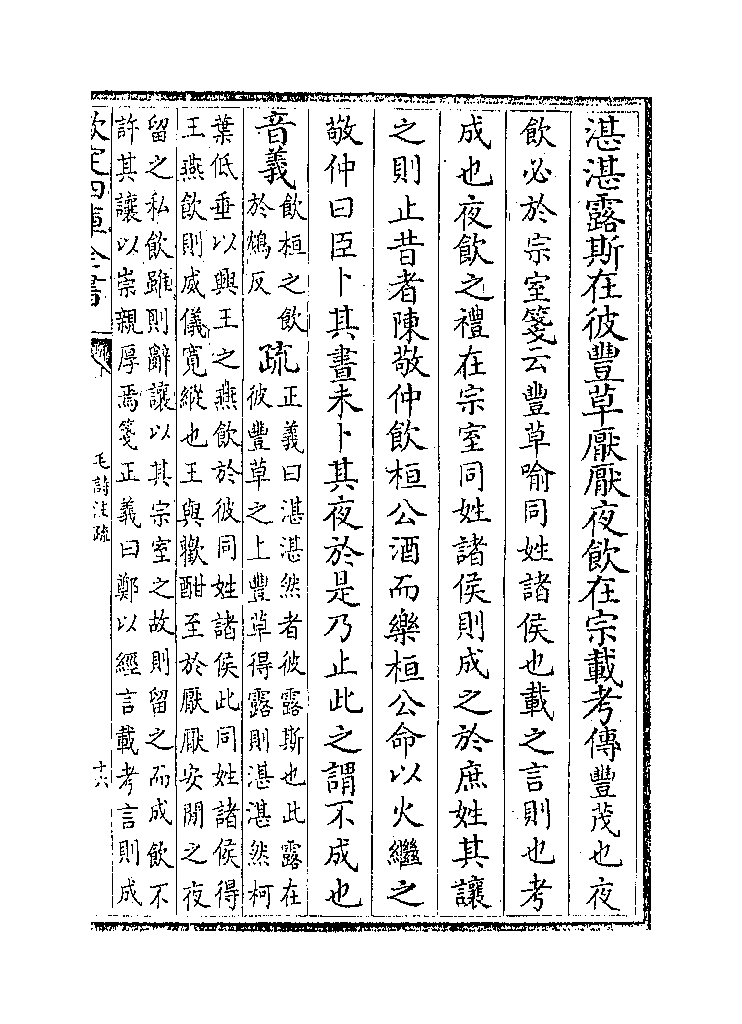 湛湛露斯在彼豐草厭厭夜飲在宗載考傳豐茂也夜
飲必於宗室箋云豐草喻同姓諸侯也載之言則也考
成也夜飲之禮在宗室同姓諸侯則成之於庶姓其讓
之則止昔者陳敬仲飲桓公酒而樂桓公命以火繼之
敬仲曰臣卜其晝未卜其夜於是乃止此之謂不成也
音義
飲桓之飲
於鴆反
疏
正義曰湛湛然者彼露斯也此露在
彼豐草之上豐草得露則湛湛然柯
葉低垂以興王之燕飲於彼同姓諸侯此同姓諸侯得
王燕飲則威儀寛縱也王與歡酣至於厭厭安閒之夜
留之私飲雖則辭讓以其宗室之故則留之而成飲不
許其讓以崇親厚焉箋正義曰鄭以經言載考言則成
欽定四庫全書
毛詩注疏
十六